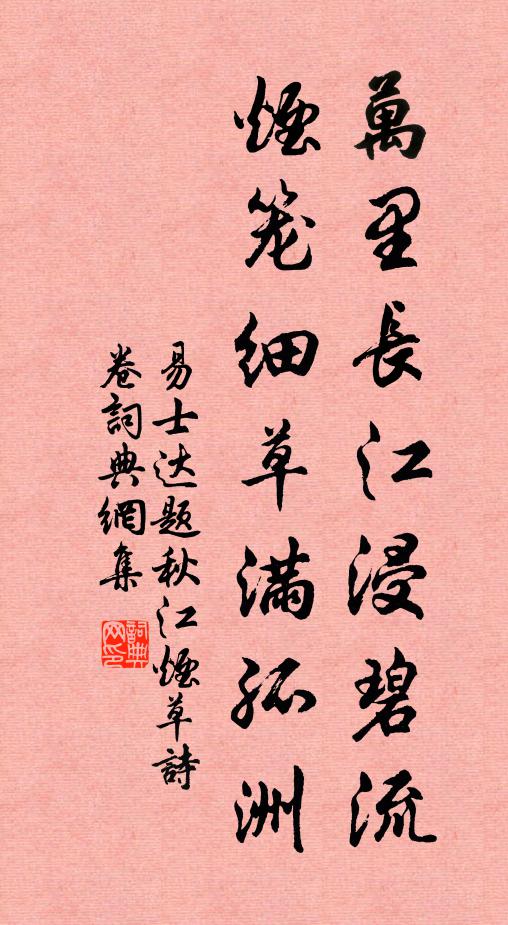 萬里長江浸碧流
煙笼细草满孤洲
易士达题秋江煙草詩
卷詞典網集
詞典网印